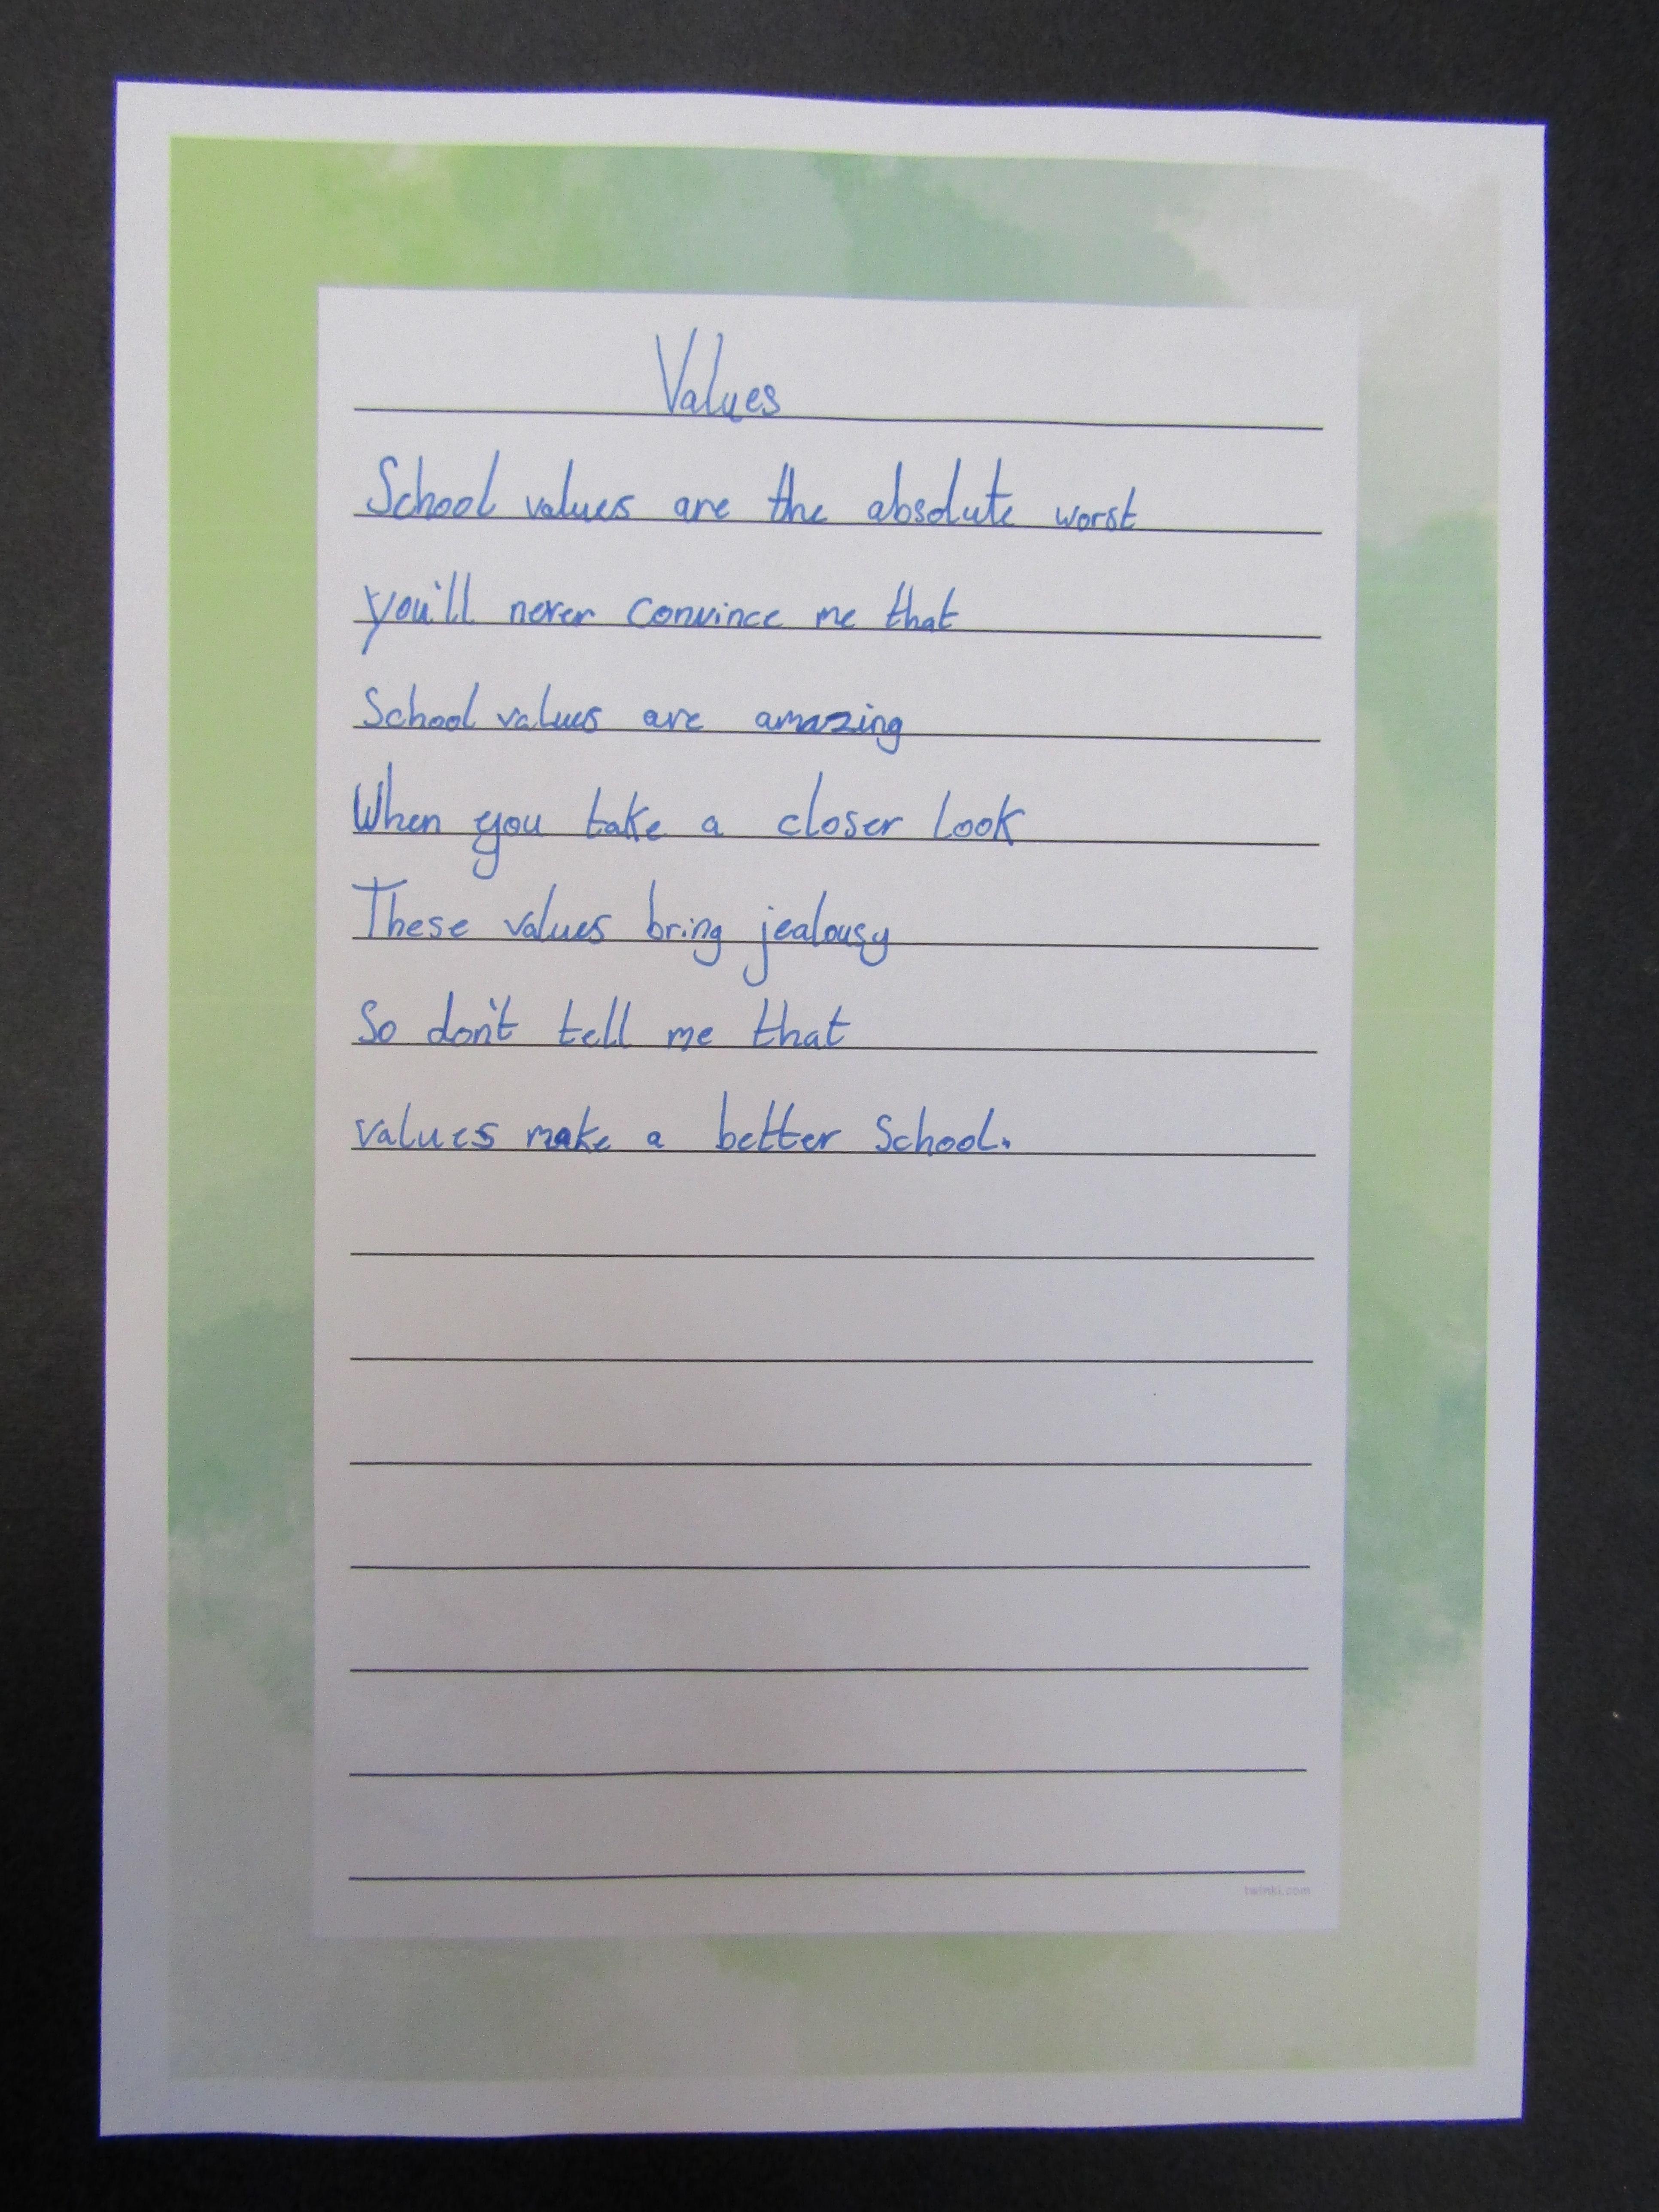 Values
School values are the absolute worst
you'll never convince me that
School values are amazing
When you take a closer look
These values bring jealousy
So don't tell me that
values make a better School.
twinkl.com